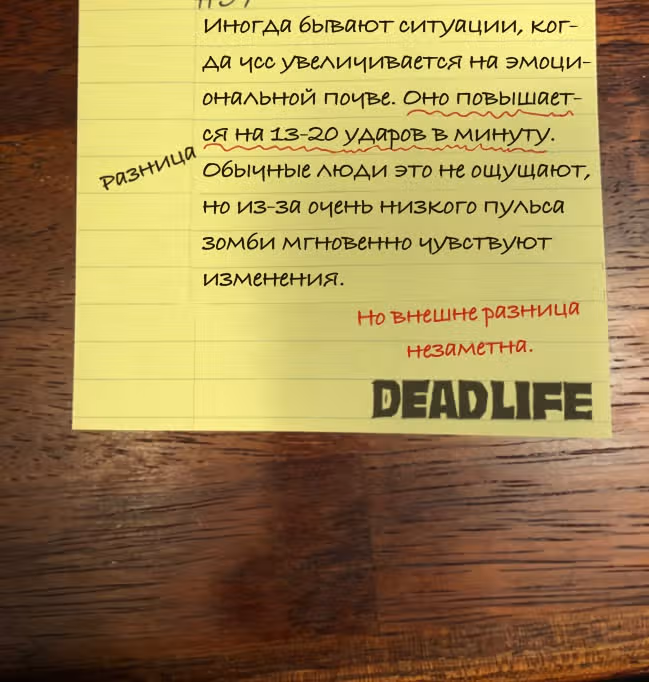 Иногда бывают ситуации, ког-
да чсс увеличивается на эмоци-
ональной почве. Оно повышает-
ся на 13-20 ударов в минуту.
разница
Обычные люди это не ощущают,
но из-за очень низкого пульса
зомби мгновенно чувствуют
изменения.
Но внешне разница
незаметна.
DEADLIFE